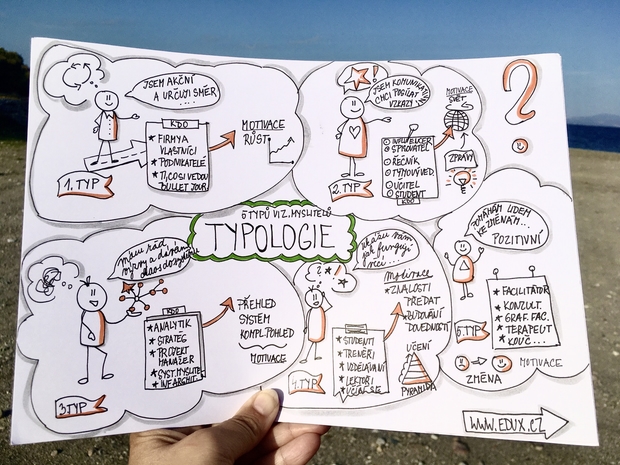 JSEM AKČNÍ
A URČUJI SMĚR ...
KDO
★ FIRMY A
VLASTNÍCI
★ PODNIKATELÉ
★ TI, CO SI VEDOU
BULLET JOUR.
MOTIVACE
RŮST
1. TYP
!
JSEM KOMUNIKATIVNÍ
CHCI POSÍLAT
VZKAZY
○ INFLUENCER
○ SPISOVATEL
○ ŘEČNÍK
○ TÝMOVÝ VED.
○ UČITEL
○ STUDENT
KDO
MOTIVACE
SVĚT
ZPRÁVY
2. TYP
?
6 TYPŮ VIZ. MYSLITELŮ
TYPOLOGIE
Mám rád
KDO
★ ANALYTIK
★ STRATÉG
★ PROJEKT
MANAŽER
★ SYST. MYSLITEL
★ INF. ARCHIT.
PŘEHLED
SYSTÉM
KOMPL. POHLED
MOTIVACE
3. TYP
Ukážu vám
jak fungují
věci ...
? !
★ STUDENTI
★ TRENÉŘI
★ VZDĚLAVATELÉ
★ LEKTOŘI
Motivace
ZNALOSTI
PŘEDAT
BUDOVÁNÍ
DOVEDNOSTÍ
UČENÍ
PYRAMIDA
4. TYP
POMÁHÁM LIDEM
KE ZMĚNÁM...
POZITIVNÍ
★ FACILITÁTOR
★ KONZULT.
★ GRAF. FAC.
★ TERAPEUT
★ KOUČ...
5. TYP
MOTIVACE
ZMĚNA
WWW.EDUX.CZ